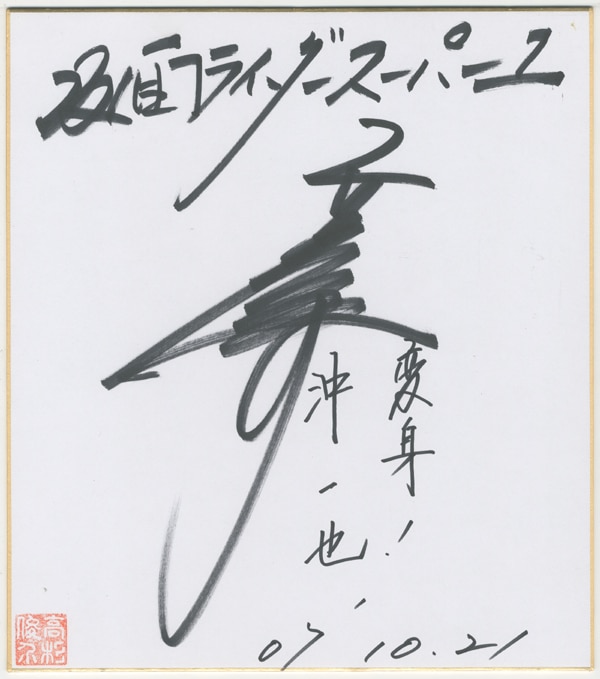 仮面ライダースーパー1
変身!
沖一也
07.10.21
高杉俊介